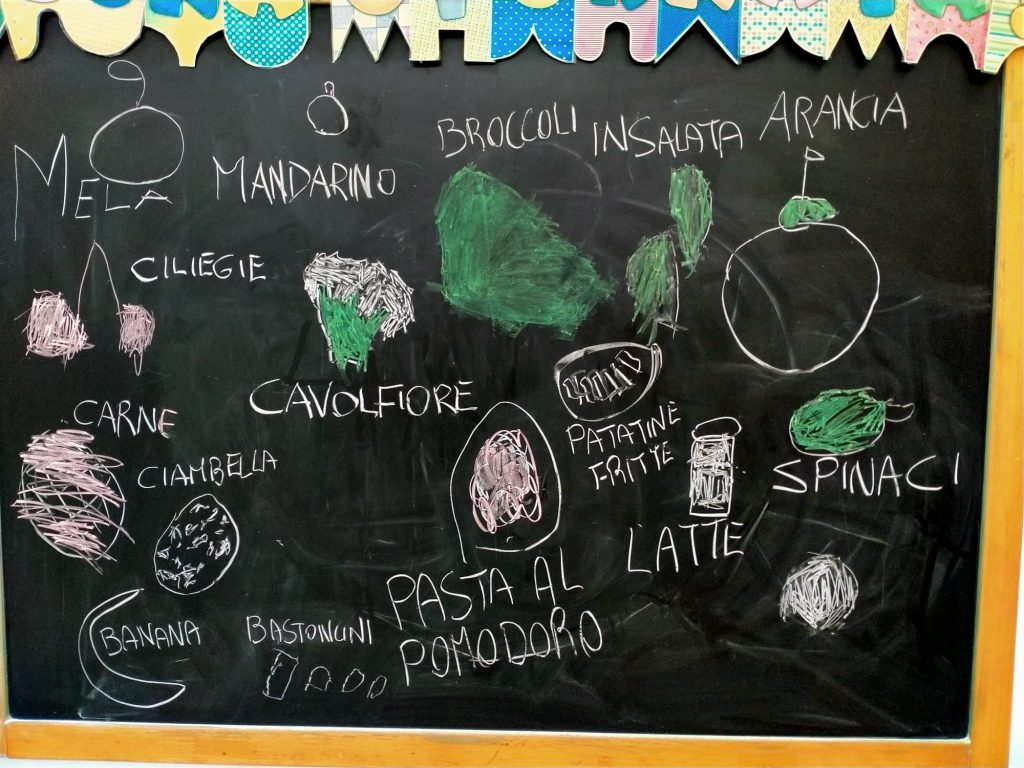 MELA
MANDARINO
BROCCOLI
INSALATA
ARANCIA
CILIEGIE
CAVOLFIORE
CARNE
CIAMBELLA
PATATINE
FRITTE
SPINACI
LATTE
PASTA AL
POMODORO
BANANA
BASTONCINI